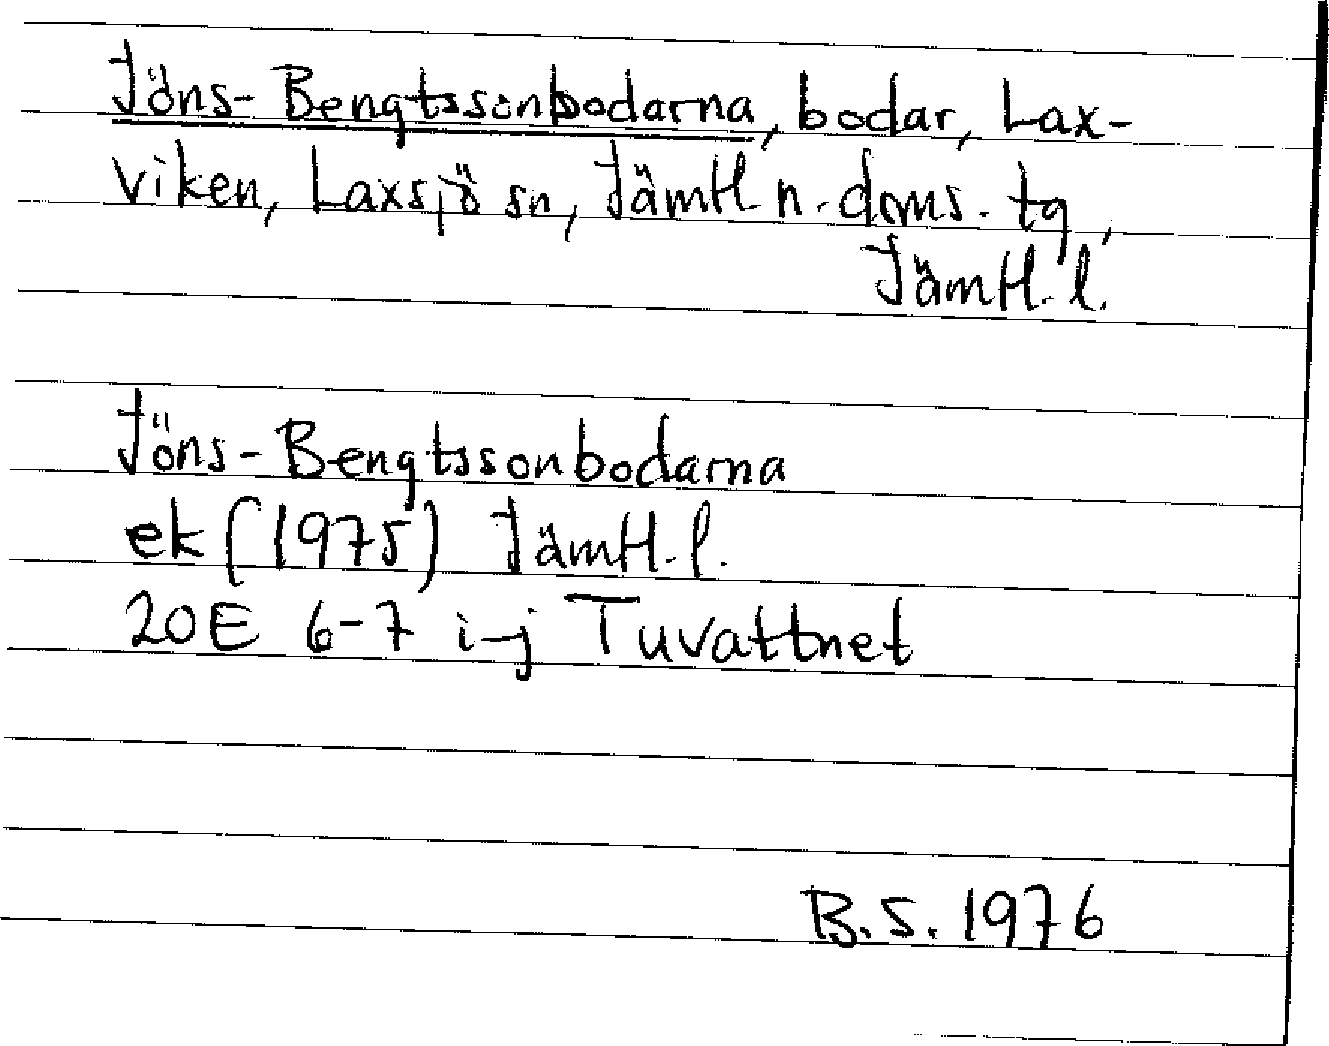 Jöns-Bengtssonbodarna, bodar, Lax-
viken, Laxsjö sn, Jämtl. n. doms. tg,
Jämtl. l.
Jöns-Bengtssonbodarna
ek (1975) Jämtl. l.
20E 6-7 i-j Tuvattnet
B.S. 1976